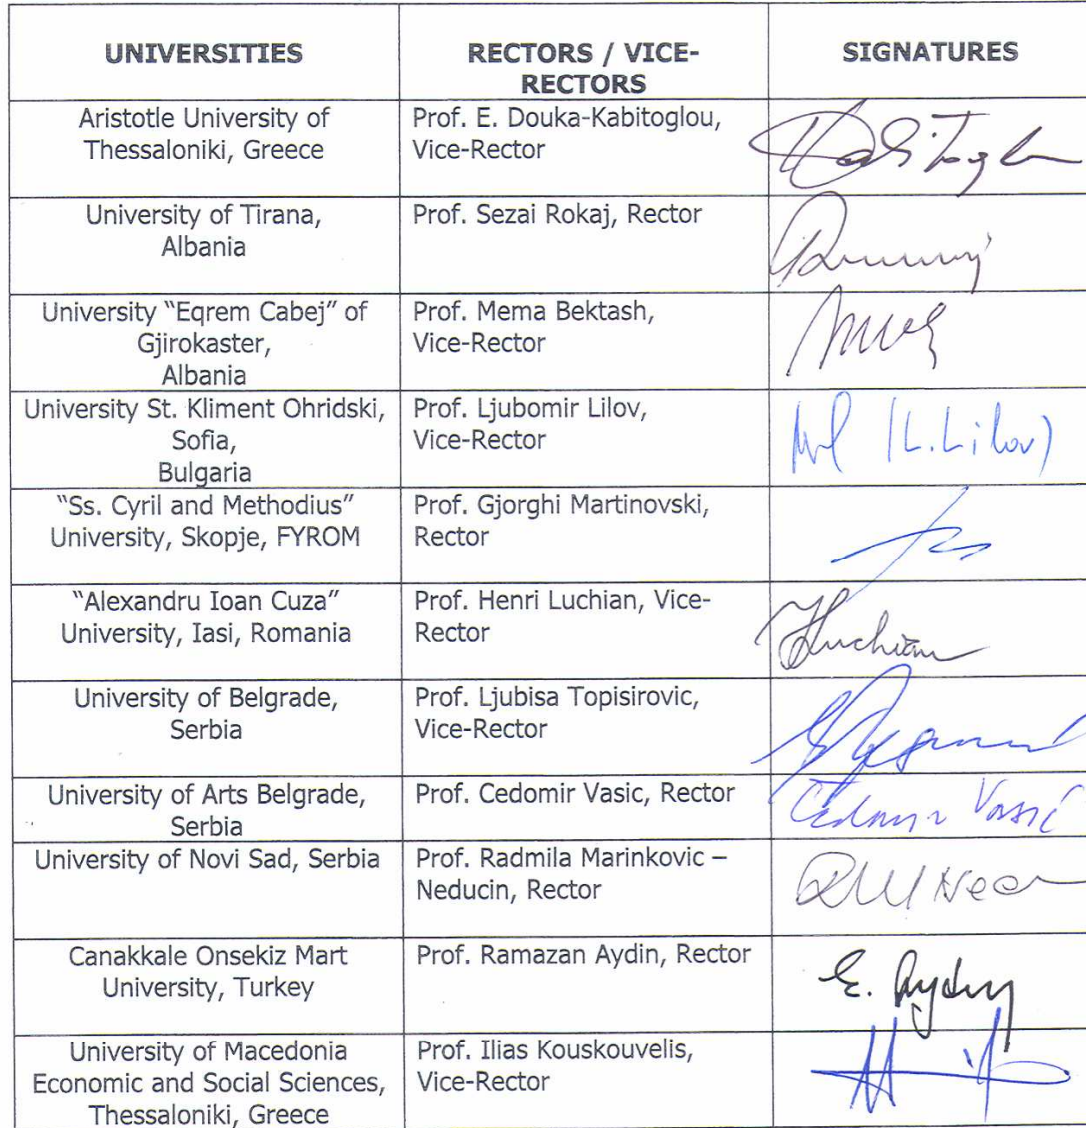 UNIVERSITIES
RECTORS / VICE-
RECTORS
SIGNATURES
Aristotle University of
Thessaloniki, Greece
Prof. E. Douka-Kabitoglou,
Vice-Rector
University of Tirana,
Albania
Prof. Sezai Rokaj, Rector
University “Eqrem Cabej” of
Gjirokaster,
Albania
Prof. Mema Bektash,
Vice-Rector
University St. Kliment Ohridski,
Sofia,
Bulgaria
Prof. Ljubomir Lilov,
Vice-Rector
(L.Lilov)
“Ss. Cyril and Methodius”
University, Skopje, FYROM
Prof. Gjorghi Martinovski,
Rector
“Alexandru Ioan Cuza”
University, Iasi, Romania
Prof. Henri Luchian, Vice-
Rector
HLuchian
University of Belgrade,
Serbia
Prof. Ljubisa Topisirovic,
Vice-Rector
University of Arts Belgrade,
Serbia
Prof. Cedomir Vasic, Rector
Čedomir Vasić
University of Novi Sad, Serbia
Prof. Radmila Marinkovic –
Neducin, Rector
Canakkale Onsekiz Mart
University, Turkey
Prof. Ramazan Aydin, Rector
University of Macedonia
Economic and Social Sciences,
Thessaloniki, Greece
Prof. Ilias Kouskouvelis,
Vice-Rector